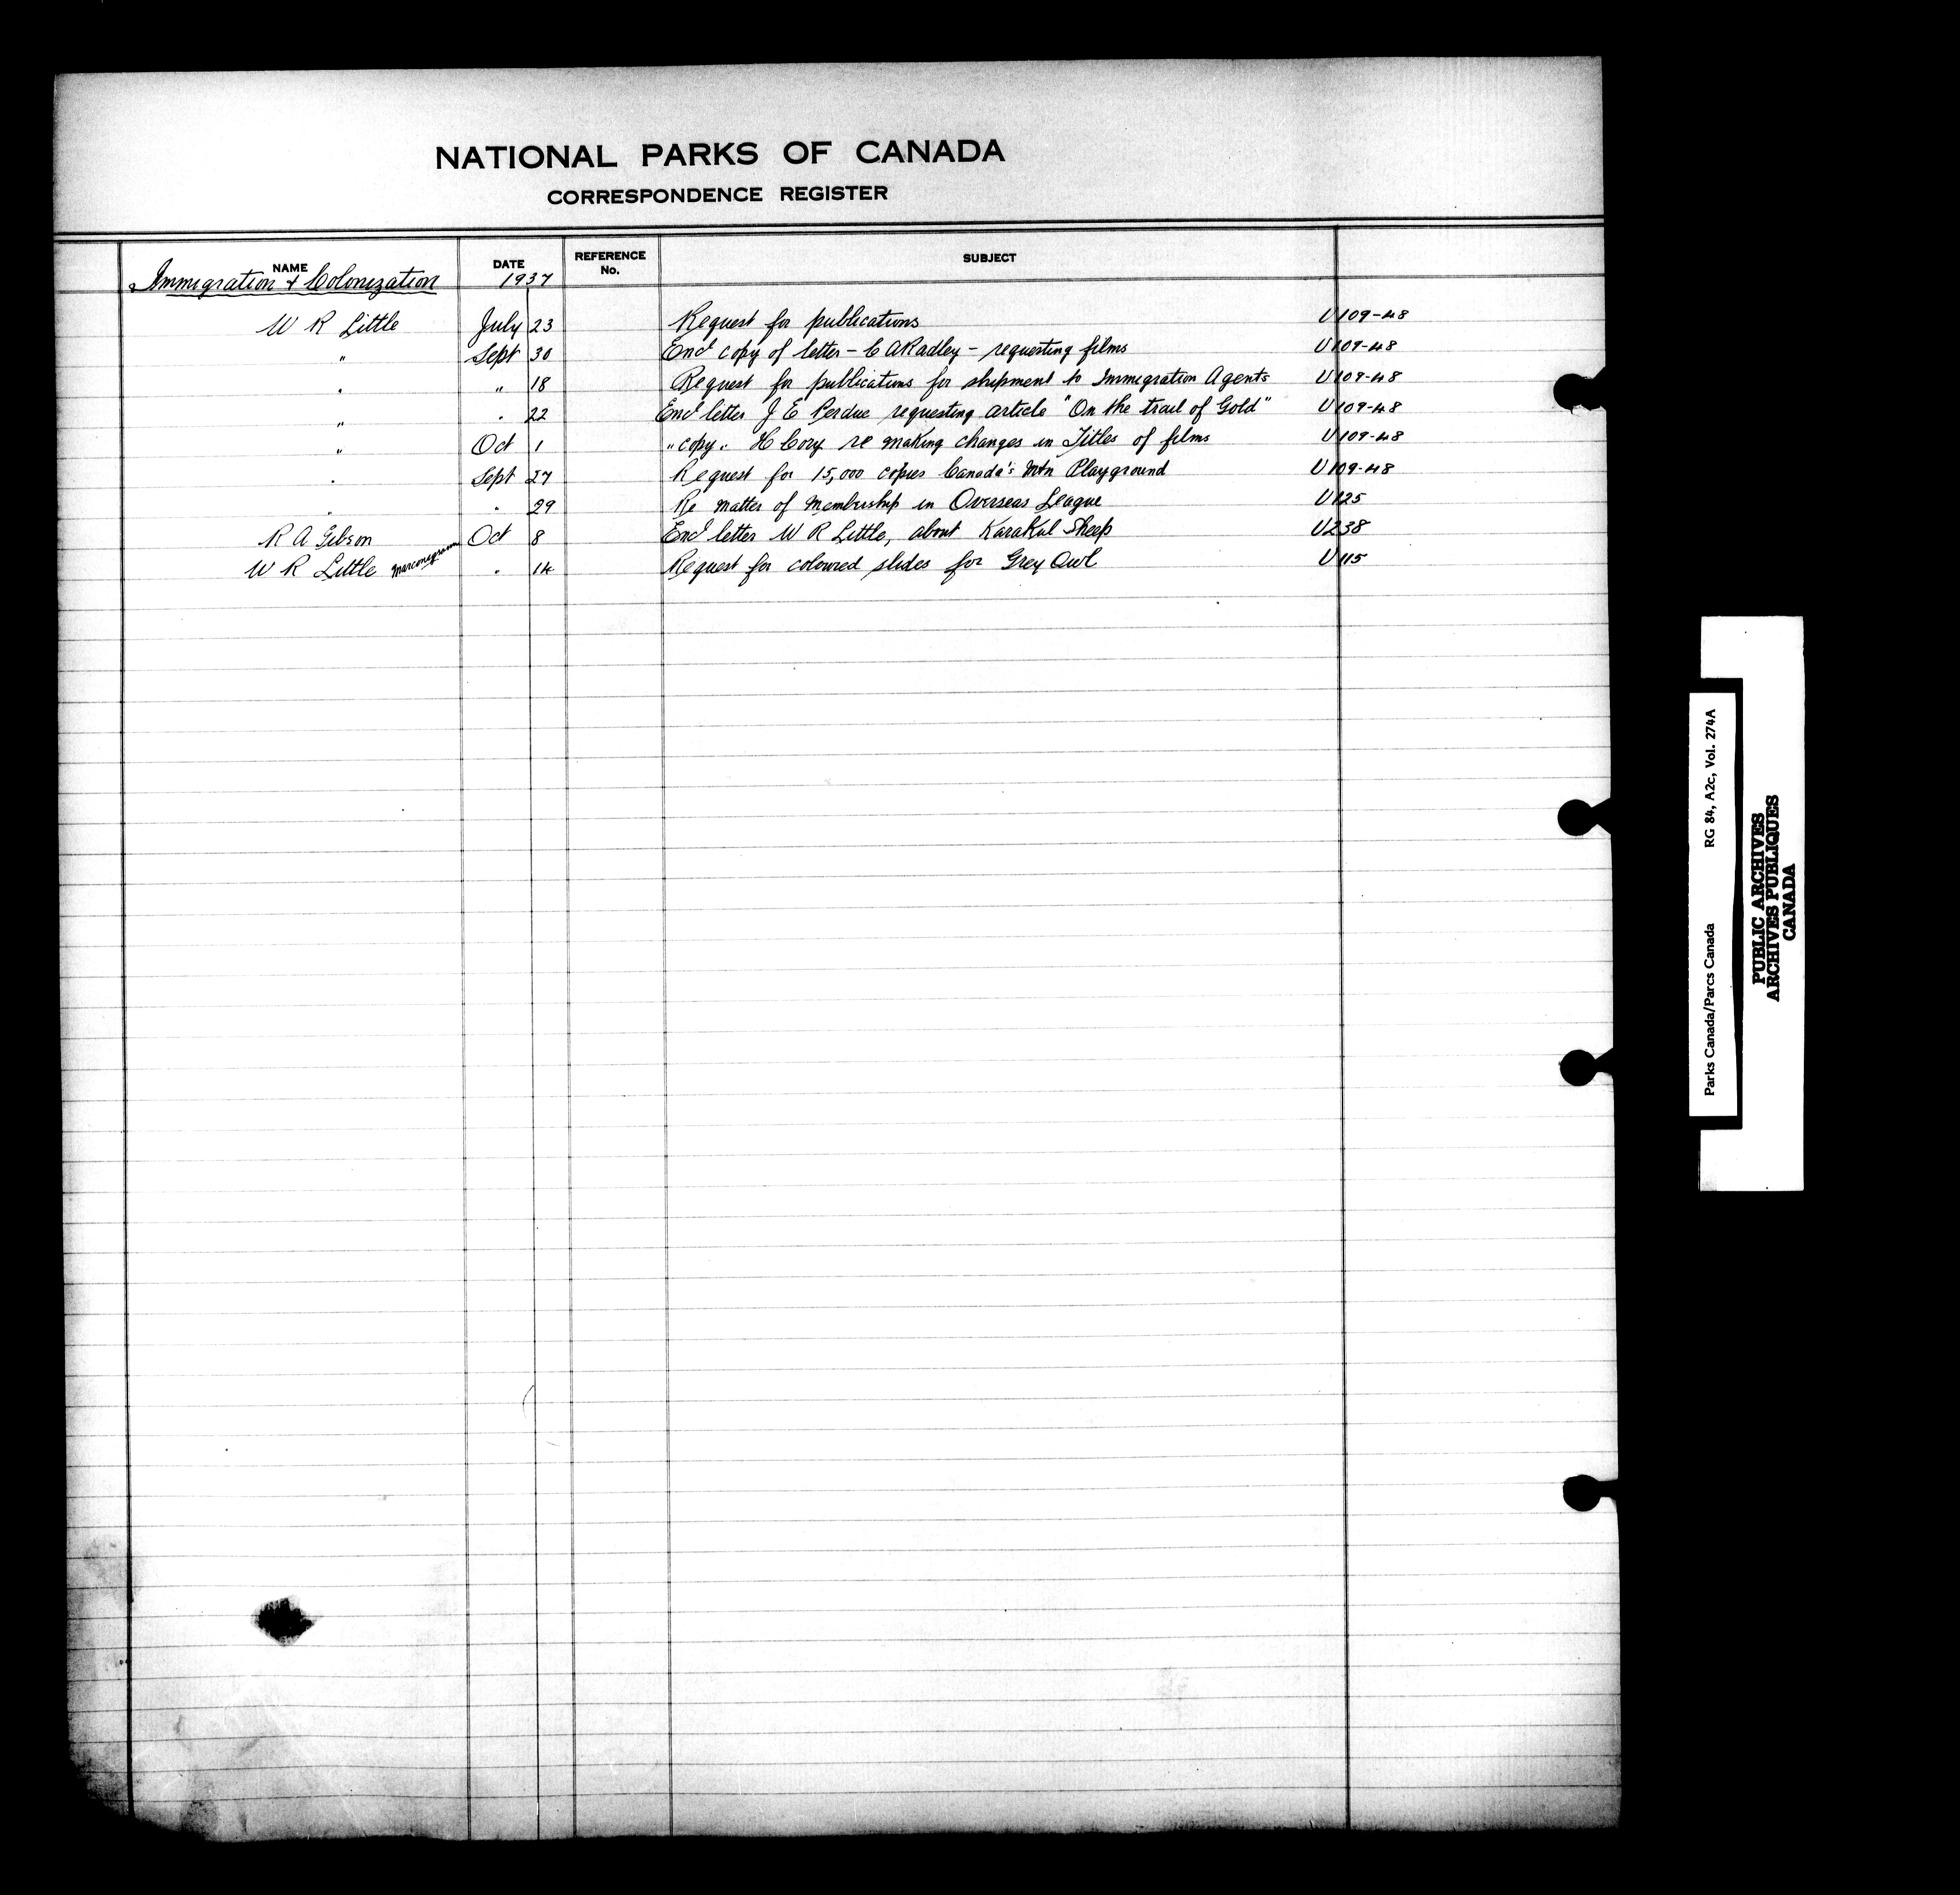 NATIONAL PARKS OF CANADA
CORRESPONDENCE REGISTER
NAME DATE REFERENCE No. SUBJECT
Immigration & Colonization 1937
W R Little July 23 Request for publications U109-48
" Sept 30 Encl copy of letter - C A Radley - requesting films U109-48
" " 18 Request for publications for shipment to Immigration Agents U109-48
" " 22 Encl letter J E Perdue requesting article "On the trail of Gold" U109-48
" Oct 1 " copy " H Cory re making changes in Titles of films U109-48
" Sept 27 Request for 15,000 copies Canada's Mtn Playground U109-48
" " 29 Re matter of Membership in Overseas League U125
R A Gibson Oct 8 Encl letter W R Little, about KaraKul Sheep U238
W R Little Marconigram " 14 Request for coloured slides for Grey Owl U115
Parks Canada/Parcs Canada RG 84, A2c, Vol. 274A
PUBLIC ARCHIVES
ARCHIVES PUBLIQUES
CANADA